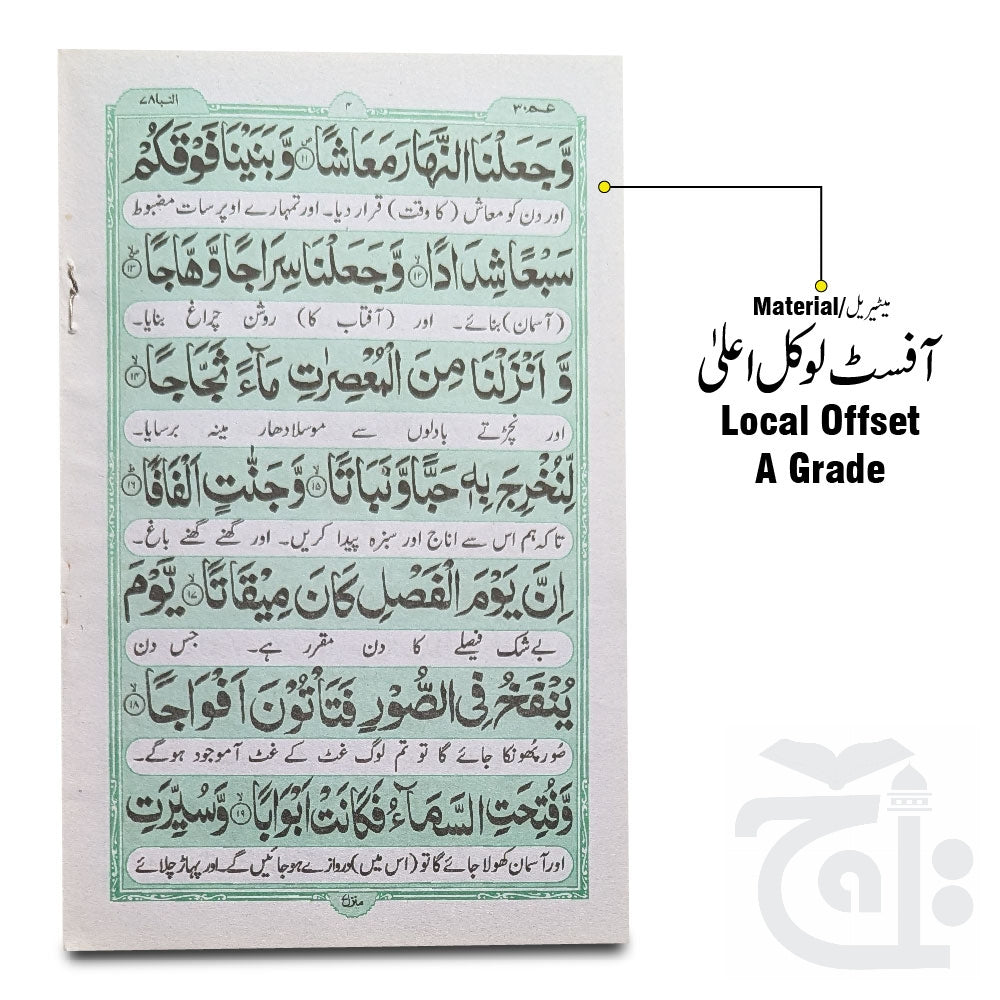 النبا ۷۸
۴
عم ۳۰
وَّ جَعَلْنَا النَّهَارَ مَعَاشًا ۝۱۱ وَّ بَنَيْنَا فَوْقَكُمْ
اور دن کو معاش (کا وقت) قرار دیا۔ اور تمہارے اوپر سات مضبوط
سَبْعًا شِدَادًا ۝۱۲ وَّ جَعَلْنَا سِرَاجًا وَّهَّاجًا ۝۱۳
(آسمان) بنائے۔ اور (آفتاب کا) روشن چراغ بنایا۔
وَّ اَنْزَلْنَا مِنَ الْمُعْصِرٰتِ مَآءً ثَجَّاجًا ۝۱۴
اور نچڑتے بادلوں سے موسلادھار مینہ برسایا۔
لِّنُخْرِجَ بِهٖ حَبًّا وَّ نَبَاتًا ۝۱۵ وَّ جَنّٰتٍ اَلْفَافًا ۝۱۶
تاکہ ہم اس سے اناج اور سبزہ پیدا کریں۔ اور گھنے گھنے باغ۔
اِنَّ يَوْمَ الْفَصْلِ كَانَ مِيْقَاتًا ۝۱۷ يَّوْمَ
بے شک فیصلے کا دن مقرر ہے۔ جس دن
يُنْفَخُ فِى الصُّوْرِ فَتَاْتُوْنَ اَفْوَاجًا ۝۱۸
صُور پھونکا جائے گا تو تم لوگ غٹ کے غٹ آموجود ہوگے۔
وَّ فُتِحَتِ السَّمَآءُ فَكَانَتْ اَبْوَابًا ۝۱۹ وَّ سُيِّرَتِ
اور آسمان کھولا جائے گا تو (اس میں) دروازے ہوجائیں گے۔ اور پہاڑ چلائے
منزل
Material/میٹیریل
آفسٹ لوکل اعلیٰ
Local Offset
A Grade
تاج